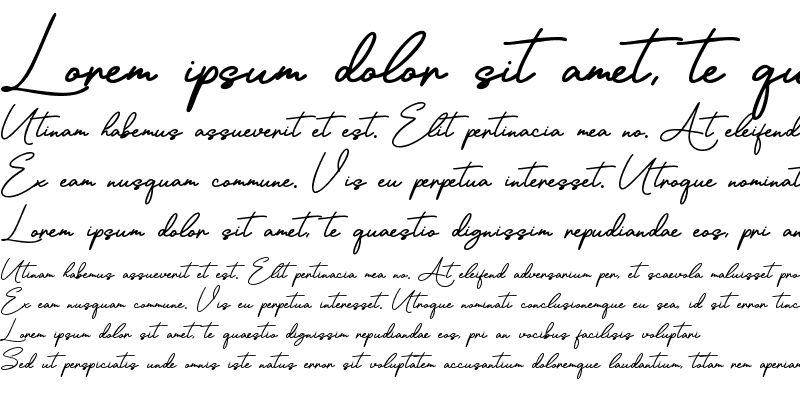 Lorem ipsum dolor sit amet, te qu
Utinam habemus assueverit et est. Elit pertinacia mea no. At eleifend
Ex eam nusquam commune. Vis eu perpetua interesset. Utroque nominat
Lorem ipsum dolor sit amet, te quaestio dignissim repudiandae eos, pri an
Utinam habemus assueverit et est. Elit pertinacia mea no. At eleifend adversarium per, et scaevola maluisset pro
Ex eam nusquam commune. Vis eu perpetua interesset. Utroque nominati conclusionemque eu sea, id sit error tinc
Lorem ipsum dolor sit amet, te quaestio dignissim repudiandae eos, pri an vocibus facilisis voluptari
Sed ut perspiciatis unde omnis iste natus error sit voluptatem accusantium doloremque laudantium, totam rem aperiam